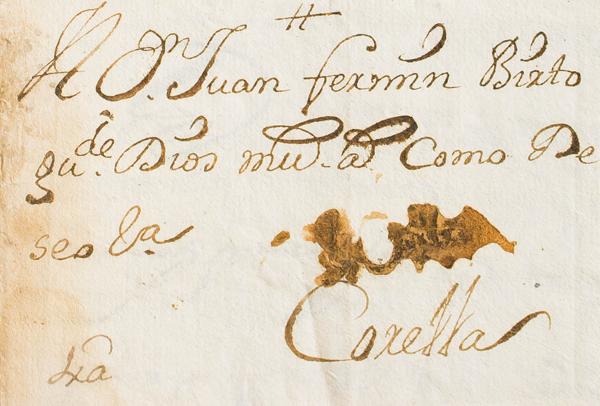 A D.n Juan fermin Birto
gu.de Dios mu.s a.s Como De
seo &a
Corella